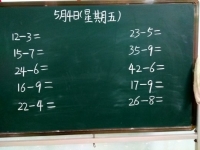 5月4日(星期五)
12-3= 23-5=
15-7= 35-9=
24-6= 42-6=
16-9= 17-9=
22-4= 26-8=